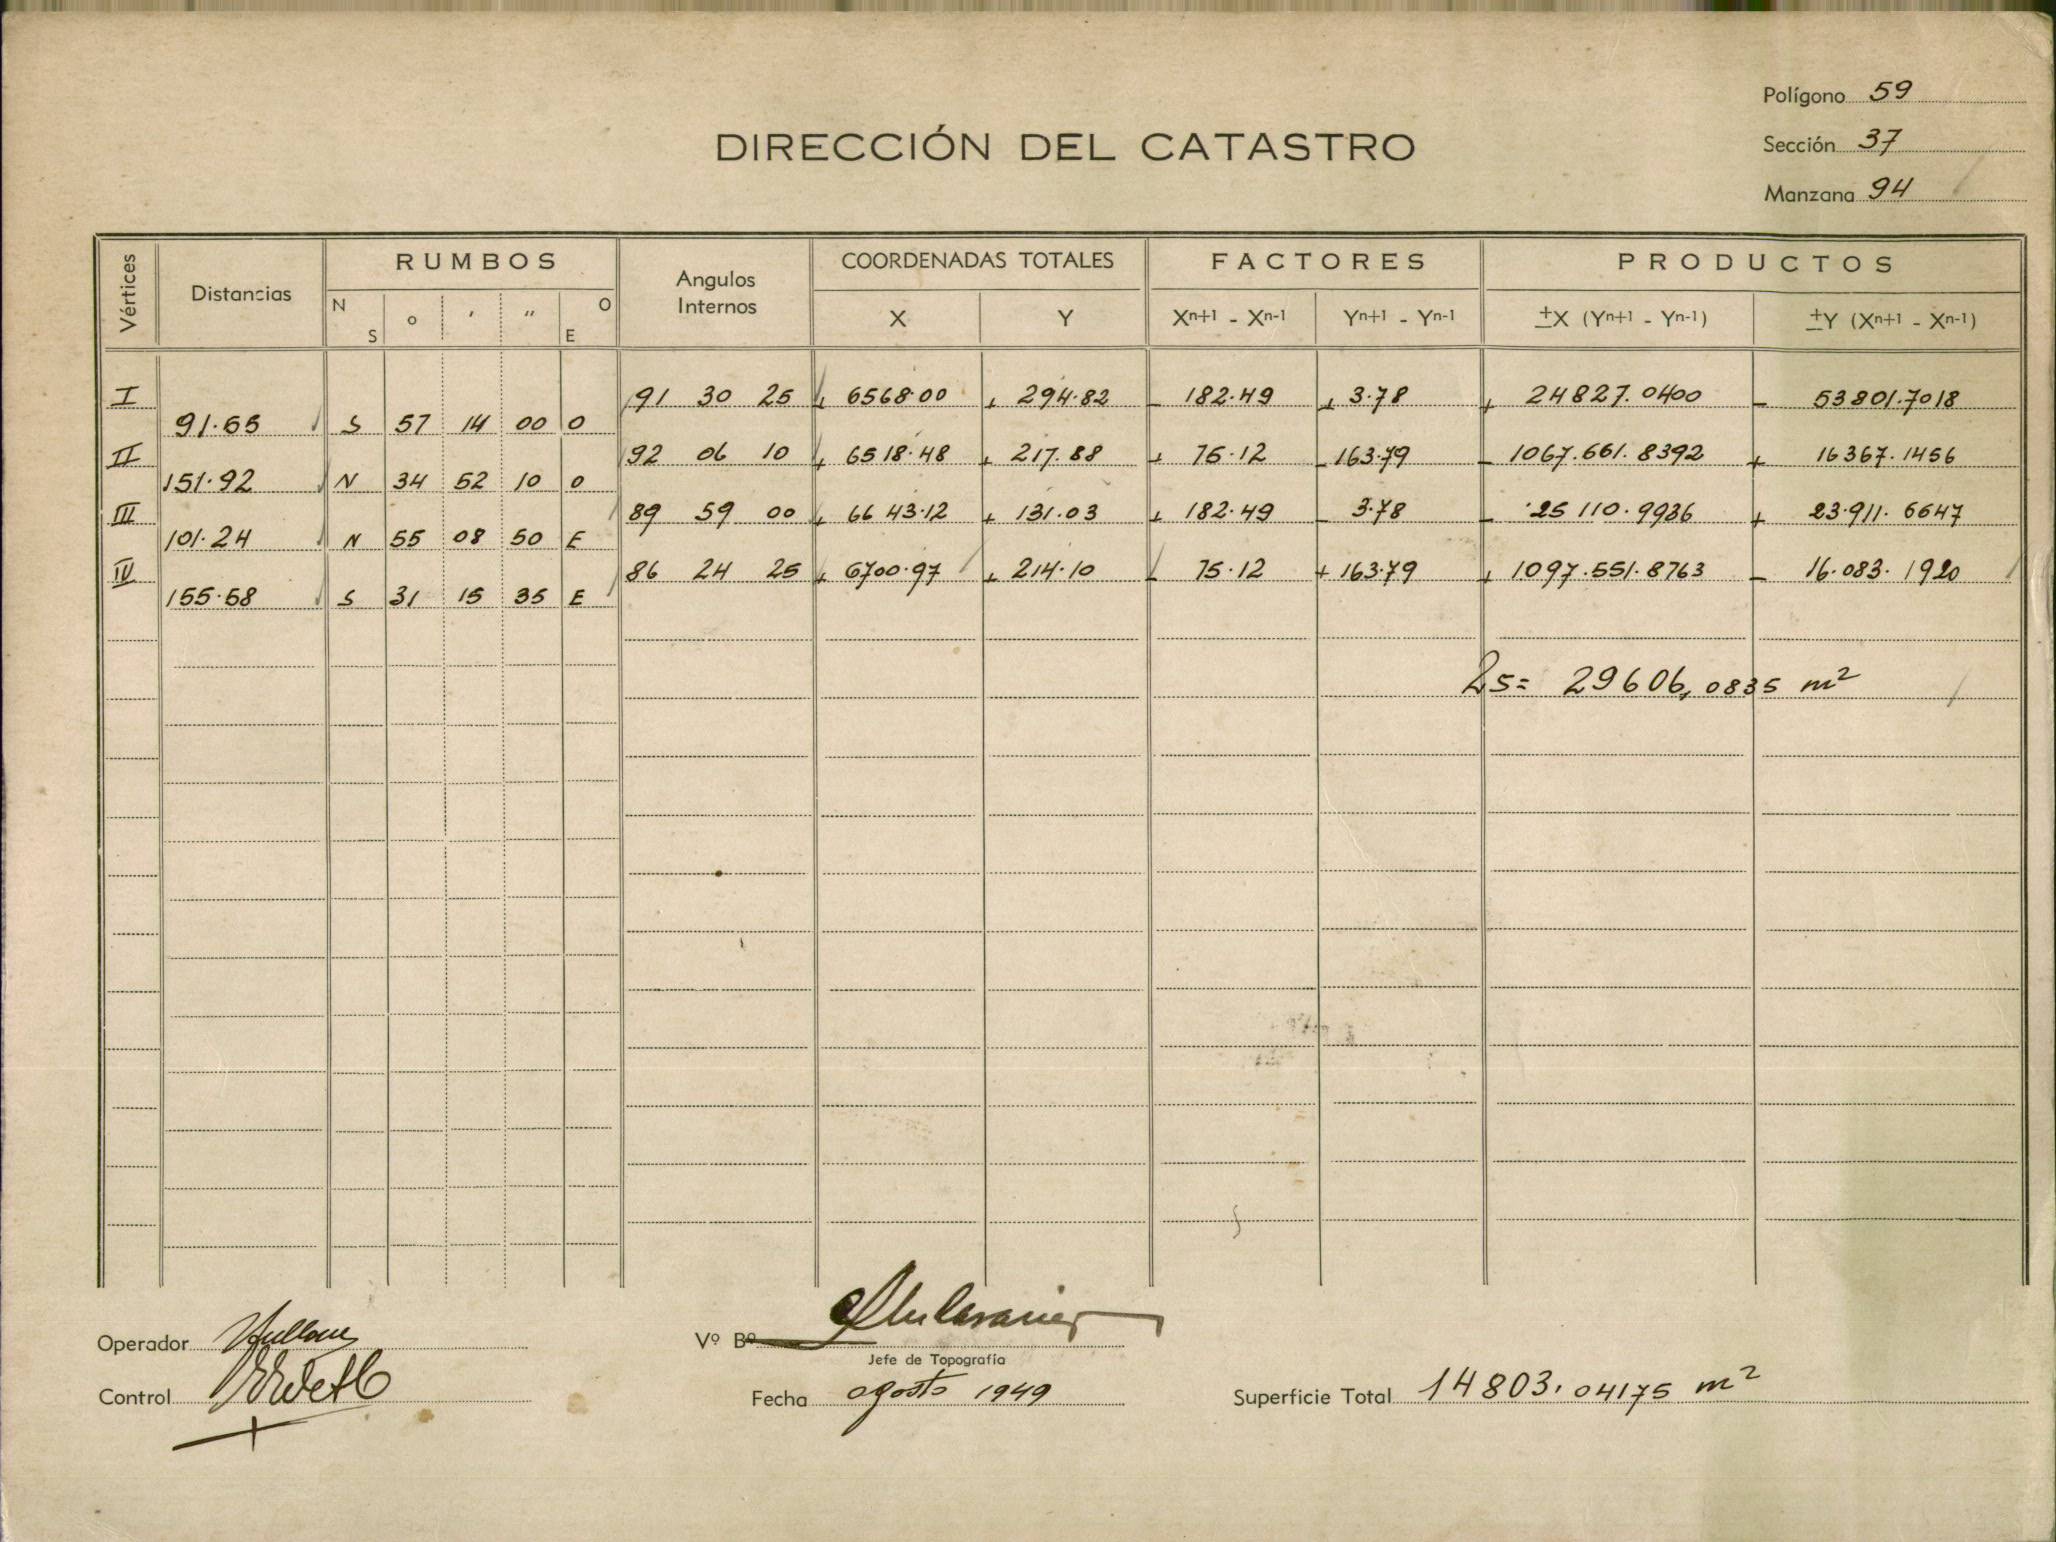 Polígono 59
DIRECCIÓN DEL CATASTRO
Sección 37
Manzana 94
Vértices Distancias RUMBOS Angulos Internos COORDENADAS TOTALES FACTORES PRODUCTOS
N S o ′ ″ O E X Y Xn+1 - Xn-1 Yn+1 - Yn-1 ±X (Yn+1 - Yn-1) ±Y (Xn+1 - Xn-1)
I 91 30 25 + 6568.00 + 294.82 - 182.49 + 3.78 + 24827.0400 - 53801.7018
91.55 S 57 14 00 O
II 92 06 10 + 6518.48 + 217.88 + 75.12 - 163.79 - 1067.661.8392 + 16367.1456
151.92 N 34 52 10 O
III 89 59 00 + 6643.12 + 131.03 + 182.49 - 3.78 - 25110.9936 + 23.911.6647
101.24 N 55 08 50 E
IV 86 24 25 + 6700.97 + 214.10 - 75.12 + 163.79 + 1097.551.8763 - 16.083.1920
155.58 S 31 15 35 E
2s= 29606,0835 m²
Operador
Vº Bº
Jefe de Topografía
Control
Fecha agosto 1949
Superficie Total 14803,04175 m²